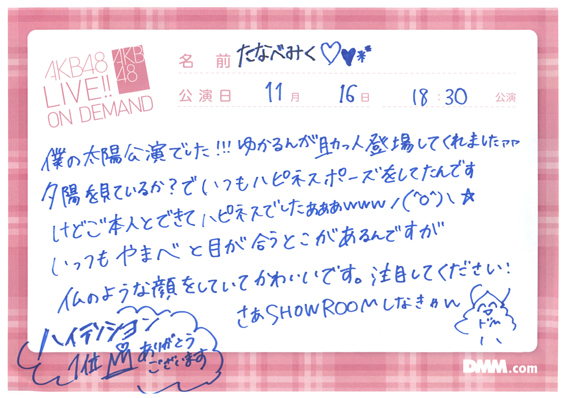 AKB48
LIVE!!
ON DEMAND
AKB48
名前 たなべみく♡♥
公演日 11月 16日 18:30 公演
僕の太陽公演でした!!! ゆかるんが助っ人登場してくれました
夕陽を見ているか?でいつもハピネスポーズをしてたんです
けどご本人とできてハピネスでしたぁぁぁwww ハ(^o^)\☆
いっつもやまべと目が合うとこがあるんですが
仏のような顔をしていてかわいいです。注目してください!
さぁSHOWROOMしなきゃん
ハイテンション
1位
ありがとう
ございます
DMM.com